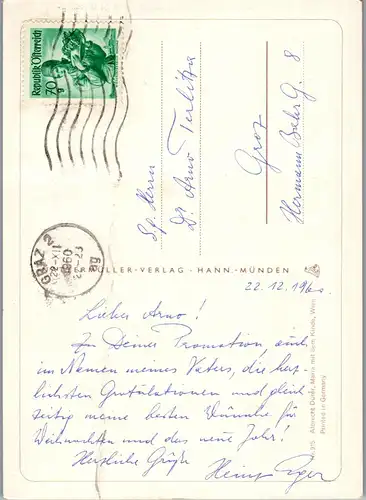 Republik Österreich
70
g
Dr. Arno Terlitza
Graz
Hermann Bahr G. 8
GRAZ 2
22.XII
1960
MÜLLER-VERLAG - HANN.-MÜNDEN
22.12.1960
Lieber Arno!
Zu Deiner Promotion auch
im Namen meines Vaters, die herz-
lichsten Gratulationen und gleich-
zeitig meine besten Wünsche für
Weihnachten und das neue Jahr!
Herzliche Grüße
Heinz
Albrecht Dürer, Maria mit dem Kinde, Wien
Printed in Germany